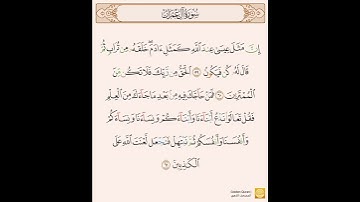 سورة آل عمران
إِنَّ مَثَلَ عِيسَىٰ عِندَ ٱللَّهِ كَمَثَلِ ءَادَمَ خَلَقَهُۥ مِن تُرَابٍ ثُمَّ
قَالَ لَهُۥ كُن فَيَكُونُ ٥٩ ٱلْحَقُّ مِن رَّبِّكَ فَلَا تَكُن مِّنَ
ٱلْمُمْتَرِينَ ٦٠ فَمَنْ حَآجَّكَ فِيهِ مِنۢ بَعْدِ مَا جَآءَكَ مِنَ ٱلْعِلْمِ
فَقُلْ تَعَالَوْا۟ نَدْعُ أَبْنَآءَنَا وَأَبْنَآءَكُمْ وَنِسَآءَنَا وَنِسَآءَكُمْ
وَأَنفُسَنَا وَأَنفُسَكُمْ ثُمَّ نَبْتَهِلْ فَنَجْعَل لَّعْنَتَ ٱللَّهِ عَلَى
ٱلْكَـٰذِبِينَ ٦١
Golden Quran